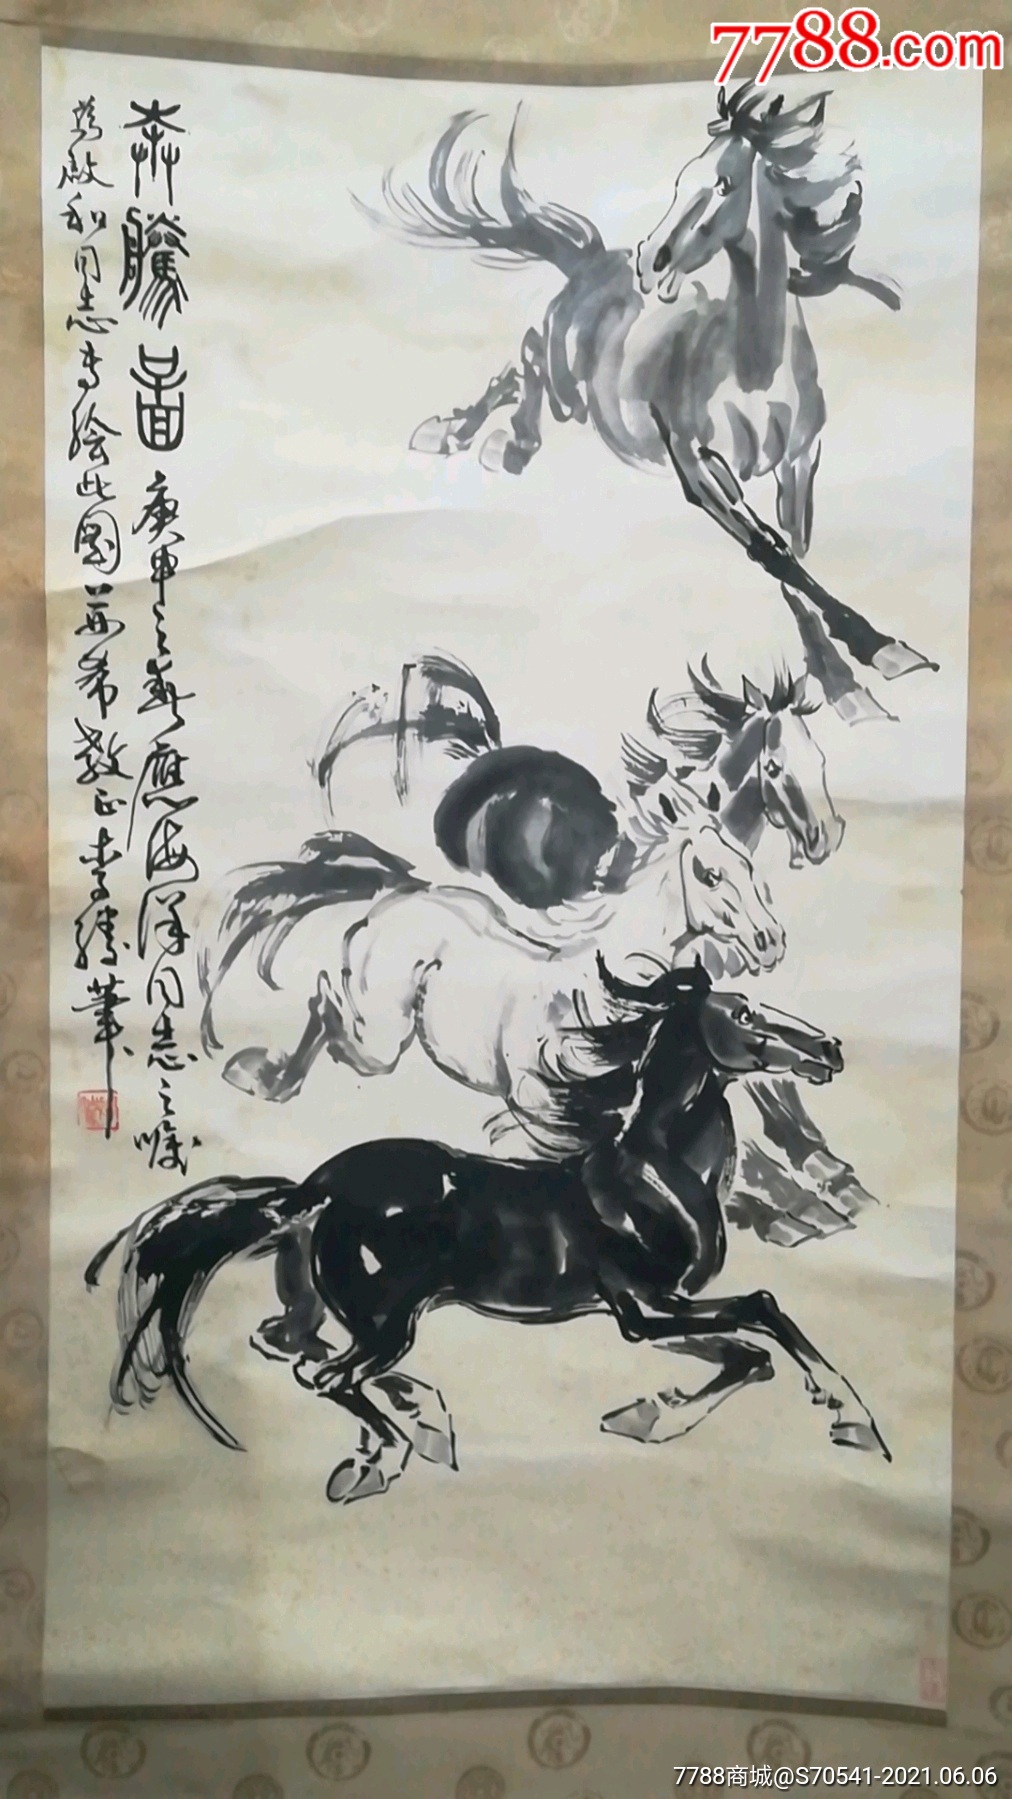 7788.com
奔騰圖
庚申之春應海洋同志之嘱
啟和同志専繪此圖並希教正李勝筆
7788商城@S70541-2021.06.06